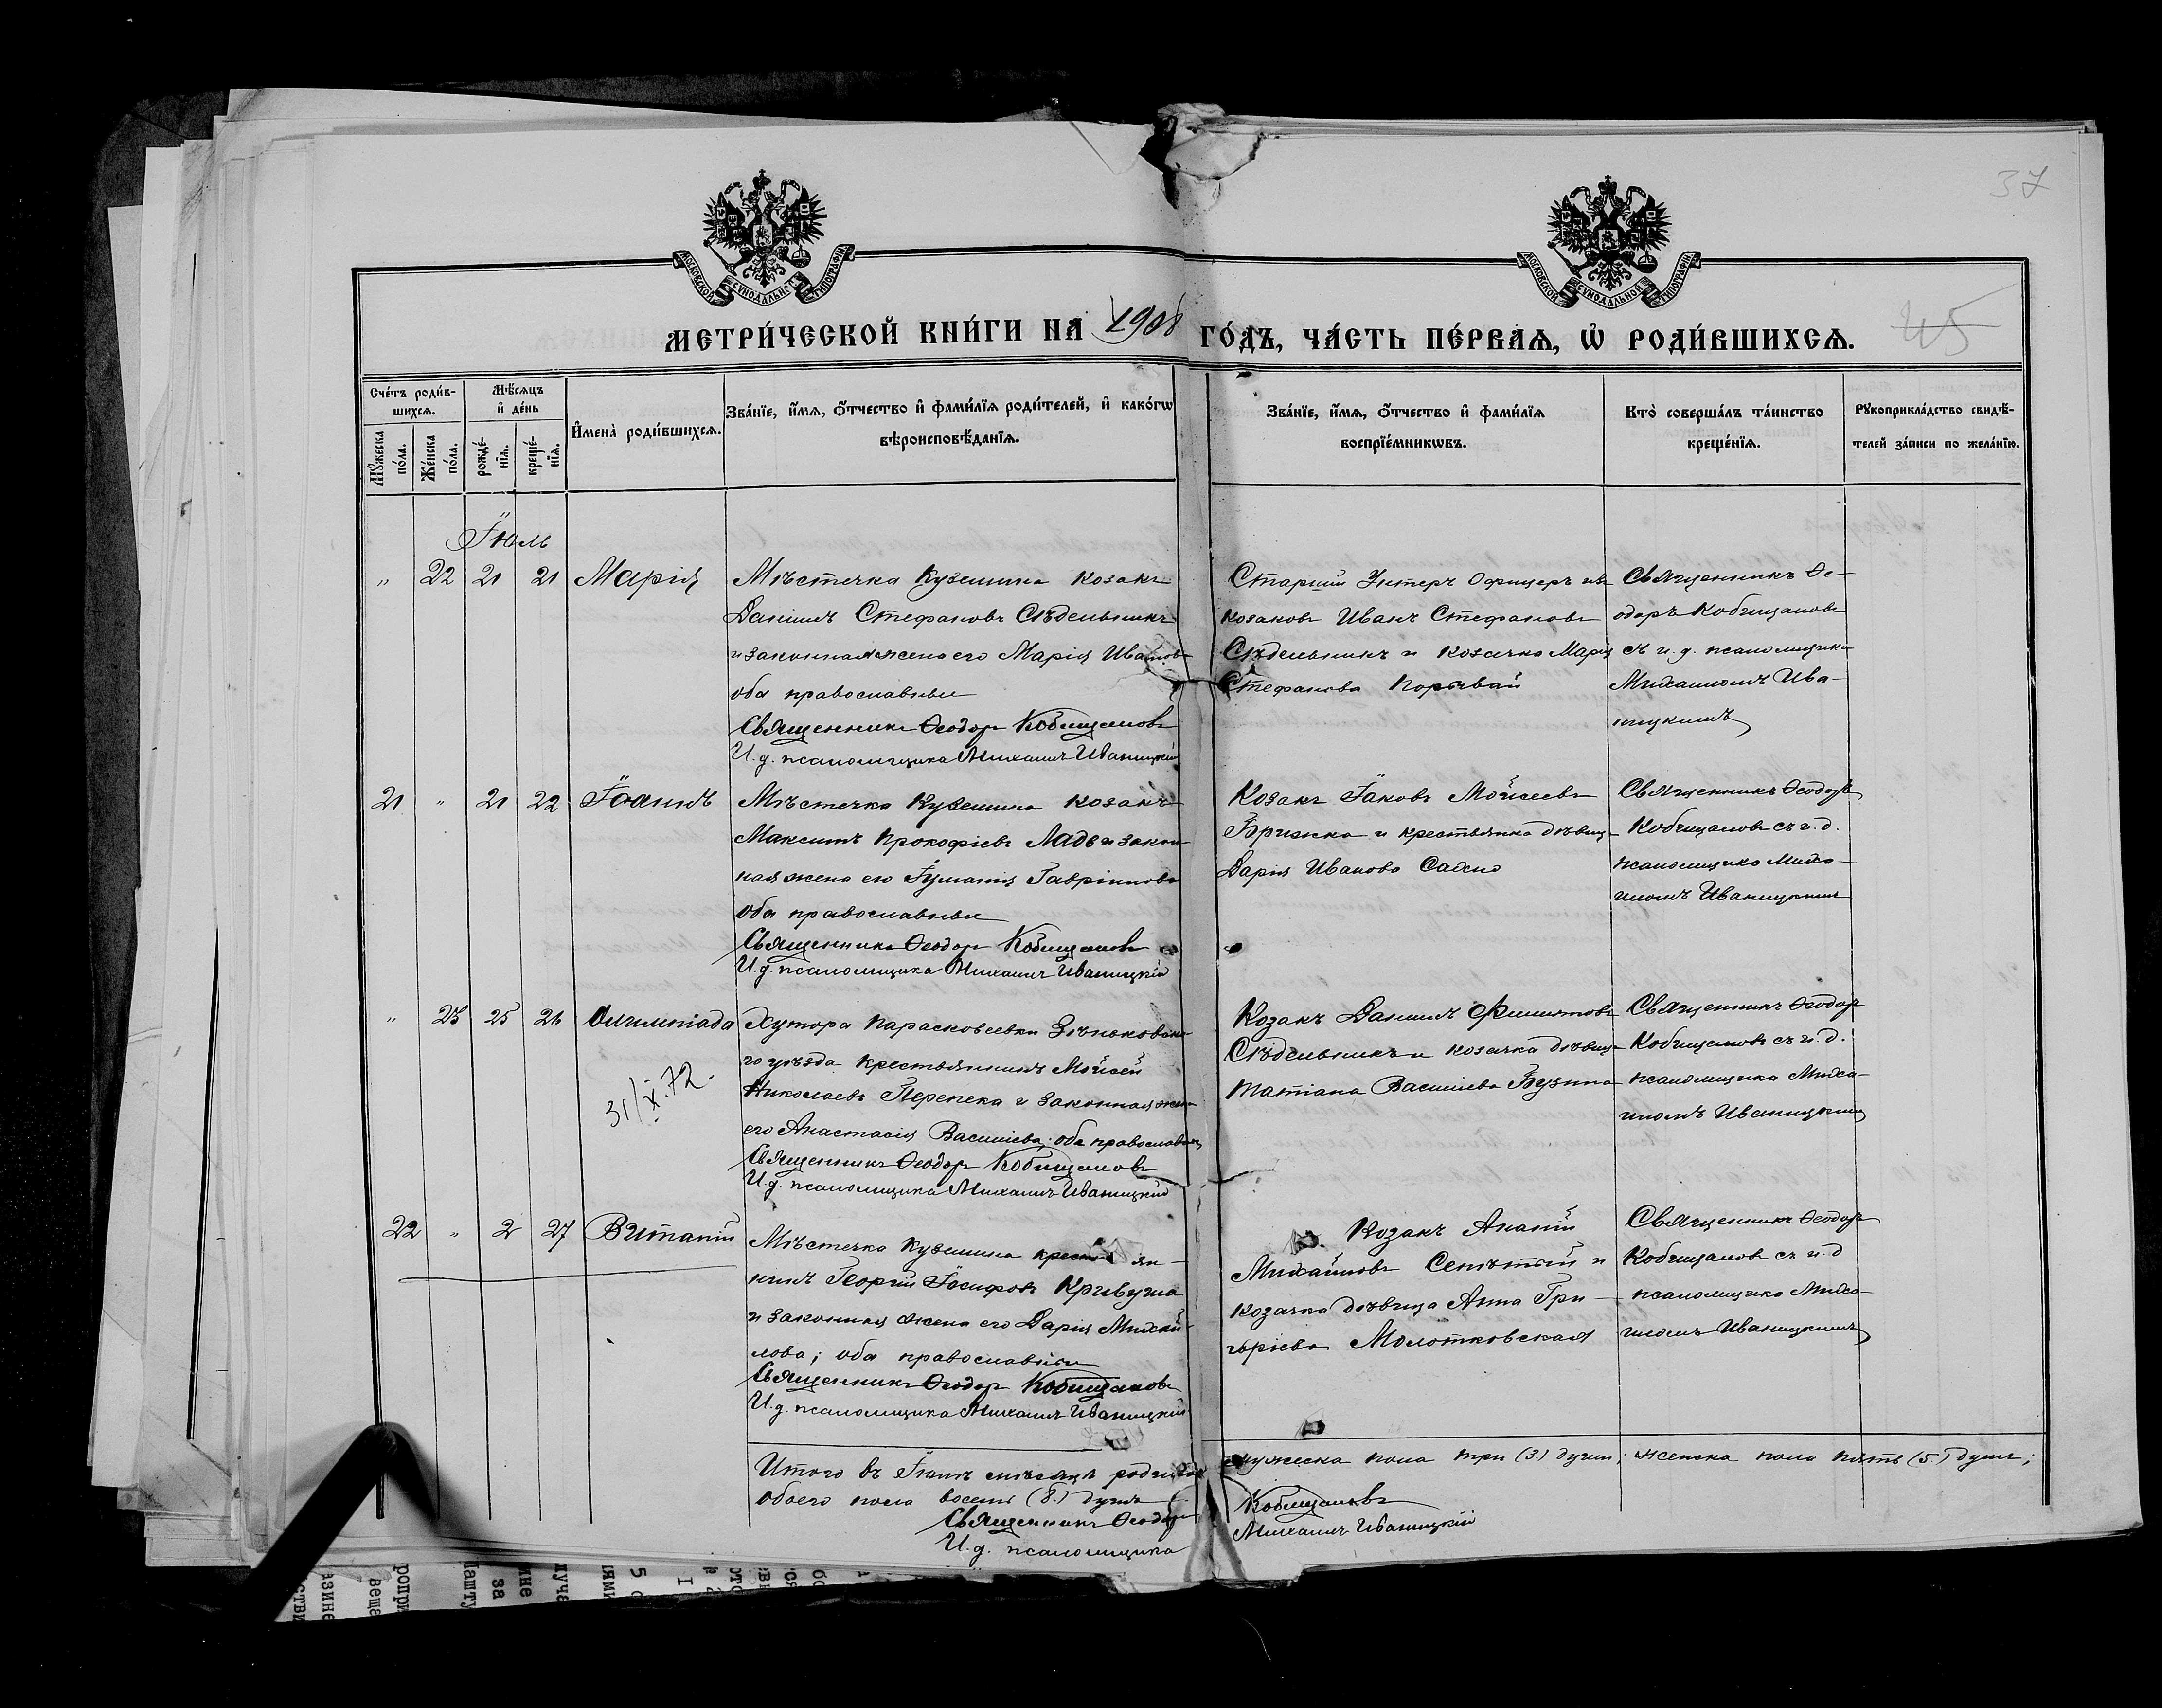 37
МОСКОВСКОЙ СѴНОДАЛЬНОЙ ТИПОГРАФІИ
МОСКОВСКОЙ СѴНОДАЛЬНОЙ ТИПОГРАФІИ
МЕТРИ́ЧЕСКОЙ КНИ́ГИ НА 1908 ГО́ДЪ, ЧА́СТЬ ПЕ́РВАѦ, Ѡ҆ РОДИ́ВШИХСѦ.
45
Сче́тъ роди́в-
шихсѧ.
Мꙋ́жеска по́ла.
Же́нска по́ла.
Мѣ́сѧцъ
и҆ де́нь
рожде́-
нїѧ.
креще́-
нїѧ.
И҆мена̀ роди́вшихсѧ.
Зва́нїе, и҆́мѧ, о҆́тчество и҆ фами́лїѧ роди́телей, и҆ како́гѡ
вѣроисповѣ́данїѧ.
Зва́нїе, и҆́мѧ, о҆́тчество и҆ фами́лїѧ
воспрїе́мникѡвъ.
Кто̀ соверша́лъ та́инство
креще́нїѧ.
Рꙋкоприкла́дство свидѣ́-
телей за́писи по жела́нїю.
Іюль
" 22 21 21 Марія
Мѣстечка Куземина козакъ
Даніилъ Стефановъ Сѣдельникъ
и законная жена его Марія Иванов
оба православные
Священникъ Ѳеодоръ Кобищановъ
И.д. псаломщика Михаилъ Иваницкій
Старшій Унтеръ Офицеръ изъ
козаковъ Иванъ Стефановъ
Сѣдельникъ и козачка Марія
Стефанова Порывай
Священникъ Ѳе-
одоръ Кобищановъ
съ и.д. псаломщика
Михаиломъ Ива-
ницкимъ
21 " 21 22 Іоаннъ
Мѣстечка Куземина козакъ
Максимъ Прокофіевъ Лада и закон-
ная жена его Іуліанія Гавріилова
оба православные
Священникъ Ѳеодоръ Кобищановъ
И.д. псаломщика Михаилъ Иваницкій
Козакъ Іаковъ Мойсеевъ
Брижка и крестьянка дѣвица
Дарія Иванова
Священникъ Ѳеодоръ
Кобищановъ съ и.д.
псаломщика Миха-
иломъ Иваницкимъ
" 23 25 26 Олимпіада
31/X.72.
Хутора Парасковеевки Зѣньковска-
го уѣзда крестьянинъ Мойсей
Николаевъ Перепека и законная жена
его Анастасія Василіева; оба православны
Священникъ Ѳеодоръ Кобищановъ
И.д. псаломщика Михаилъ Иваницкій
Козакъ Даніилъ Филиповъ
Сѣдельникъ и козачка дѣвица
Татіана Василіева
Священникъ Ѳеодоръ
Кобищановъ съ и.д.
псаломщика Миха-
иломъ Иваницкимъ
22 " 2 27 Виталій
Мѣстечка Куземина крестьян-
инъ Георгій Іосифовъ Кривуша
и законная жена его Дарія Михай-
лова; оба православные
Священникъ Ѳеодоръ Кобищановъ
И.д. псаломщика Михаилъ Иваницкій
Козакъ Ананій
Михайловъ и
козачка дѣвица Анна Гри-
горіева Молотковская
Священникъ Ѳеодоръ
Кобищановъ съ и.д
псаломщика Миха-
иломъ Иваницкимъ
Итого въ Іюлѣ мѣсяцѣ родилось мужеска пола три (3) души; женска пола пять (5) душъ;
обоего пола восемь (8.) душъ
Священникъ Ѳеодоръ Кобищановъ
И.д. псаломщика Михаилъ Иваницкій